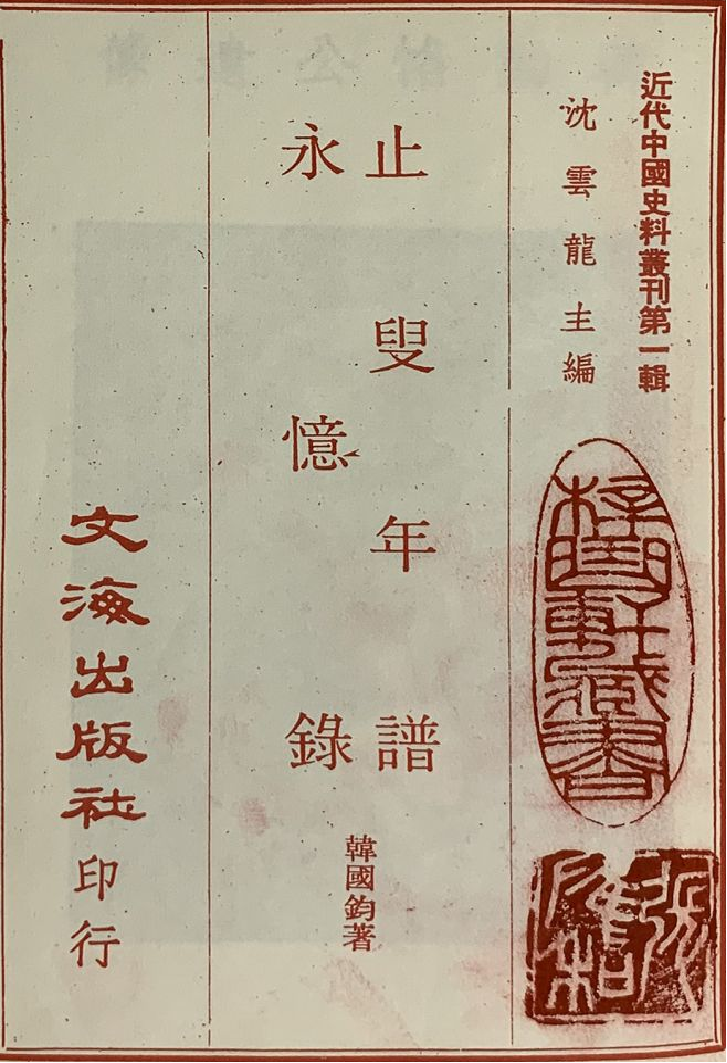 近代中國史料叢刊第一輯
沈雲龍主編
止叟年譜
永憶錄
韓國鈞著
文海出版社印行
軒藏書